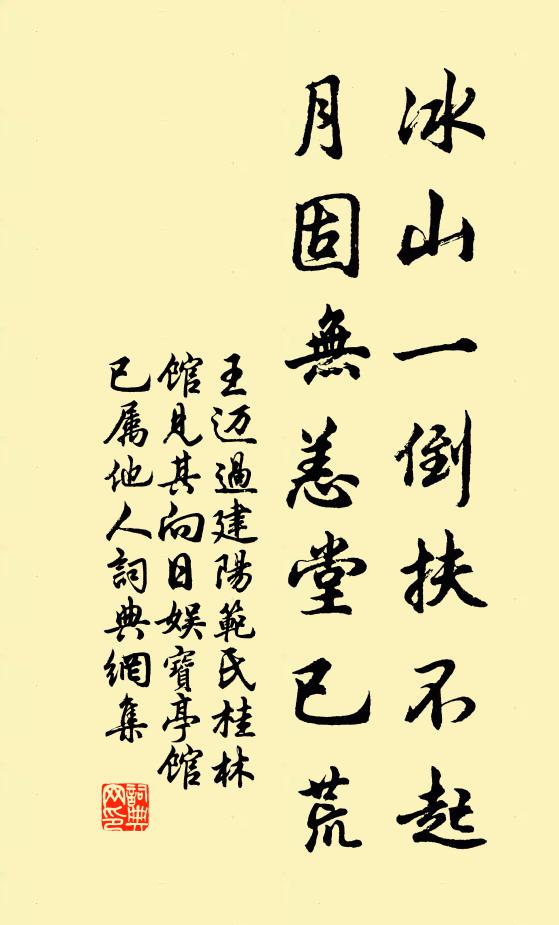 冰山一倒扶不起
月固無恙堂已荒
王迈過建陽範氏桂林
馆見其向日娱寶亭馆
已属他人詞典網集
詞典网印